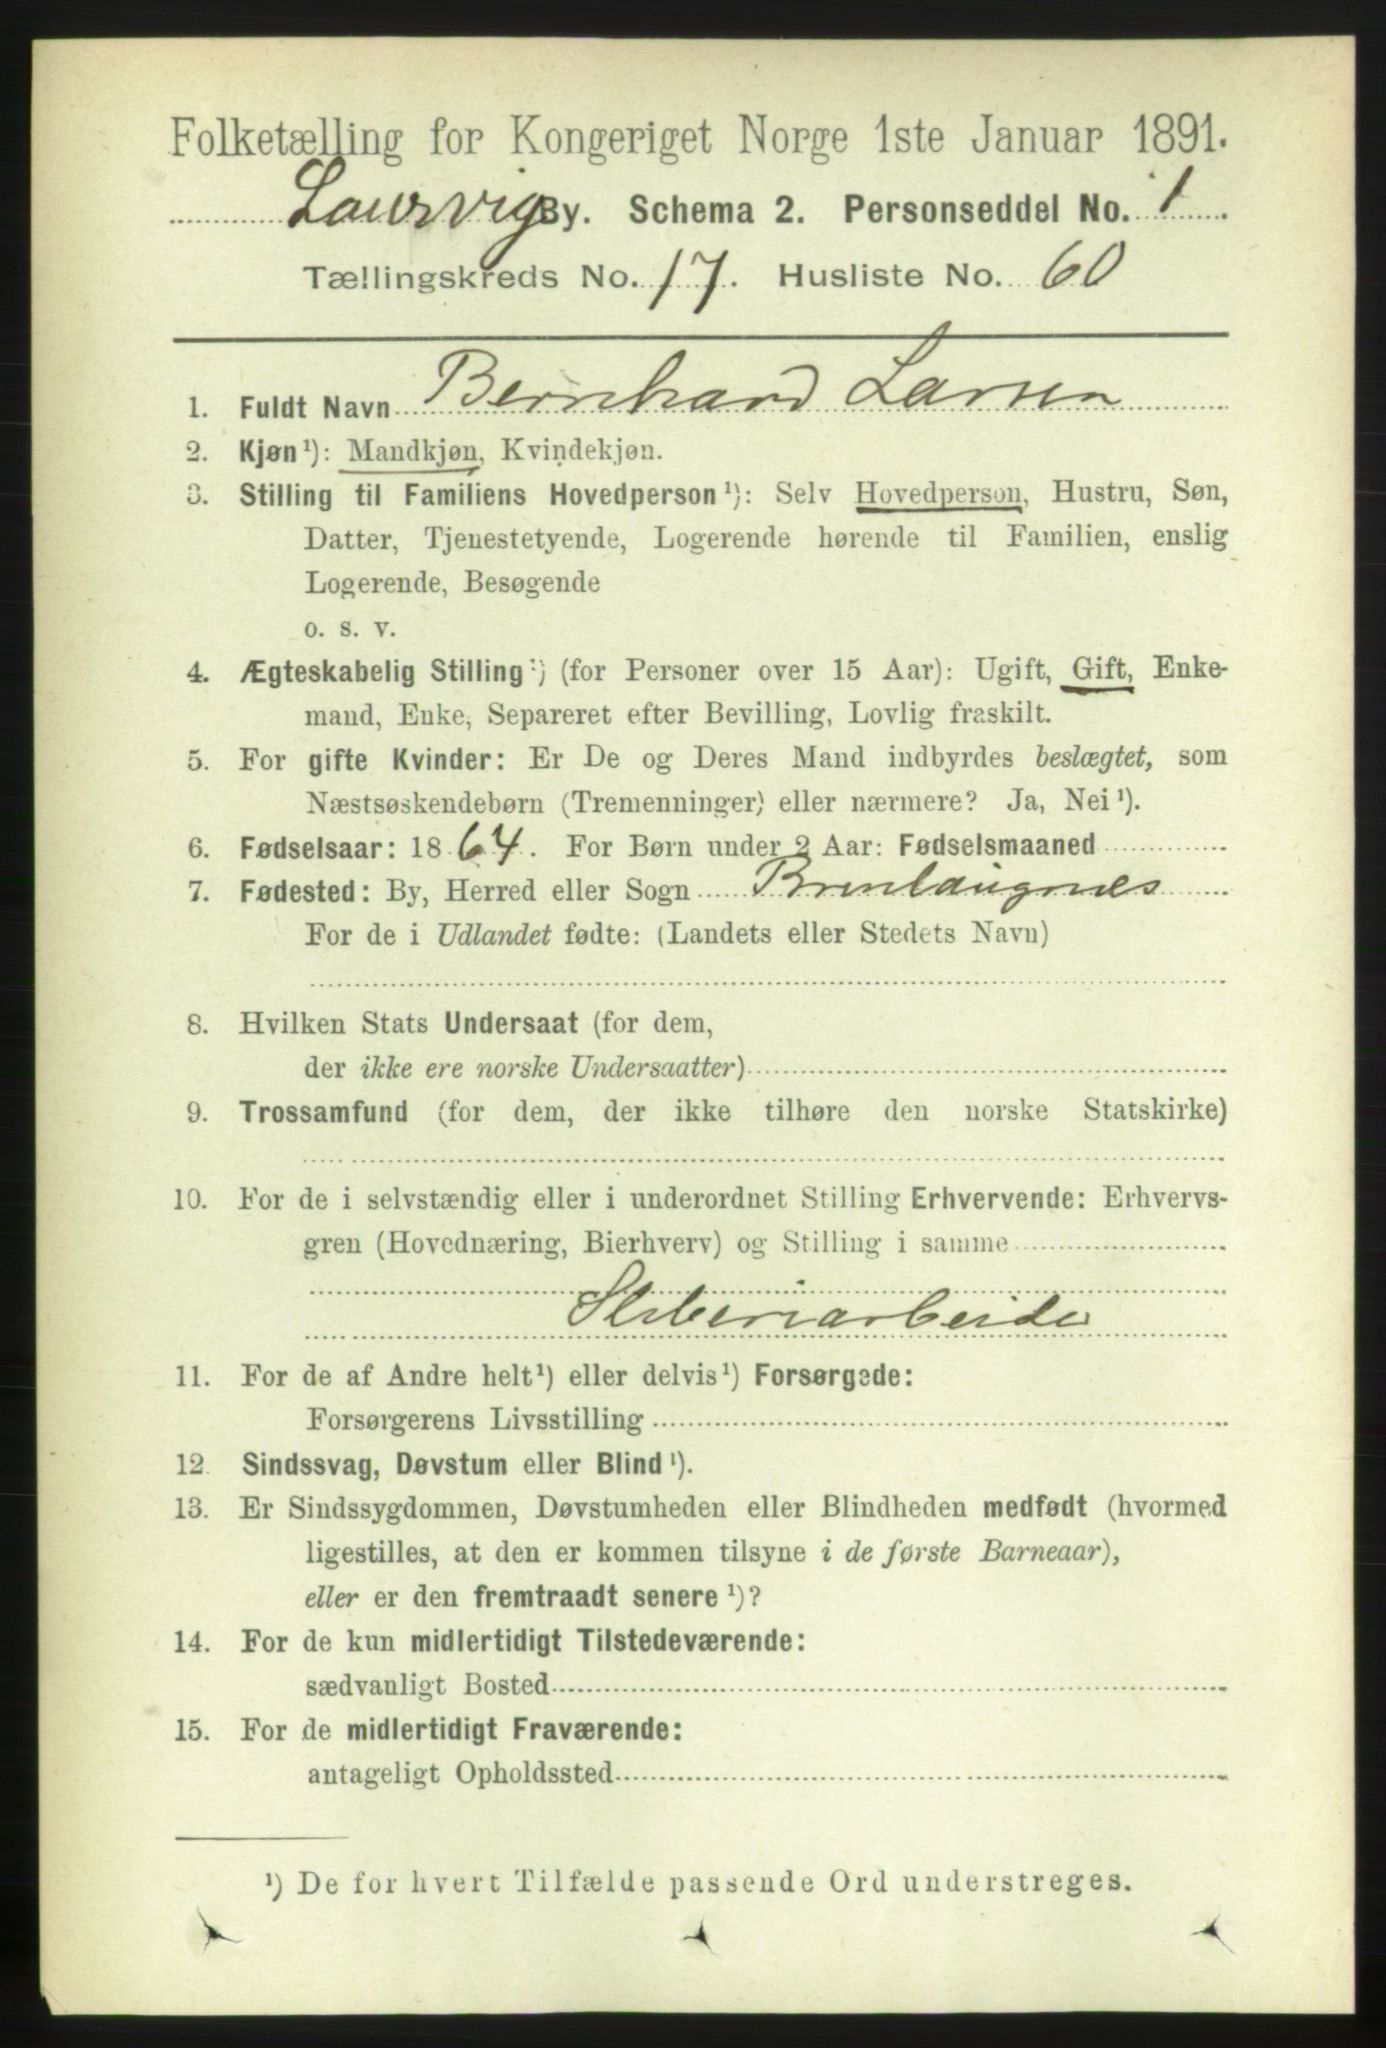 Folketælling for Kongeriget Norge 1ste Januar 1891.
Laurvig By. Schema 2. Personseddel No. 1
Tællingskreds No. 17. Husliste No. 60
1. Fuldt Navn Bernhard Larsen
2. Kjøn¹): Mandkjøn, Kvindekjøn.
3. Stilling til Familiens Hovedperson¹): Selv Hovedperson, Hustru, Søn,
Datter, Tjenestetyende, Logerende hørende til Familien, enslig
Logerende, Besøgende
o. s. v.
4. Ægteskabelig Stilling¹) (for Personer over 15 Aar): Ugift, Gift, Enke-
mand, Enke, Separeret efter Bevilling, Lovlig fraskilt.
5. For gifte Kvinder: Er De og Deres Mand indbyrdes beslægtet, som
Næstsøskendebørn (Tremenninger) eller nærmere? Ja, Nei¹).
6. Fødselsaar: 1864. For Børn under 2 Aar: Fødselsmaaned
7. Fødested: By, Herred eller Sogn Brunlaugnæs
For de i Udlandet fødte: (Landets eller Stedets Navn)
8. Hvilken Stats Undersaat (for dem,
der ikke ere norske Undersaatter)
9. Trossamfund (for dem, der ikke tilhøre den norske Statskirke)
10. For de i selvstændig eller i underordnet Stilling Erhvervende: Erhvervs-
gren (Hovednæring, Bierhverv) og Stilling i samme
Sliberiarbeider
11. For de af Andre helt¹) eller delvis¹) Forsørgede:
Forsørgerens Livsstilling
12. Sindssvag, Døvstum eller Blind¹).
13. Er Sindssygdommen, Døvstumheden eller Blindheden medfødt (hvormed
ligestilles, at den er kommen tilsyne i de første Barneaar),
eller er den fremtraadt senere¹)?
14. For de kun midlertidigt Tilstedeværende:
sædvanligt Bosted
15. For de midlertidigt Fraværende:
antageligt Opholdssted
¹) De for hvert Tilfælde passende Ord understreges.